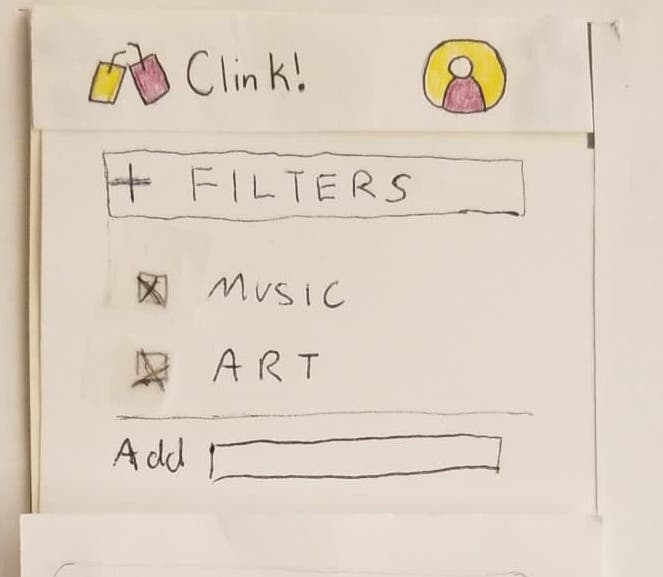 Clink!
+ FILTERS
MUSIC
ART
Add